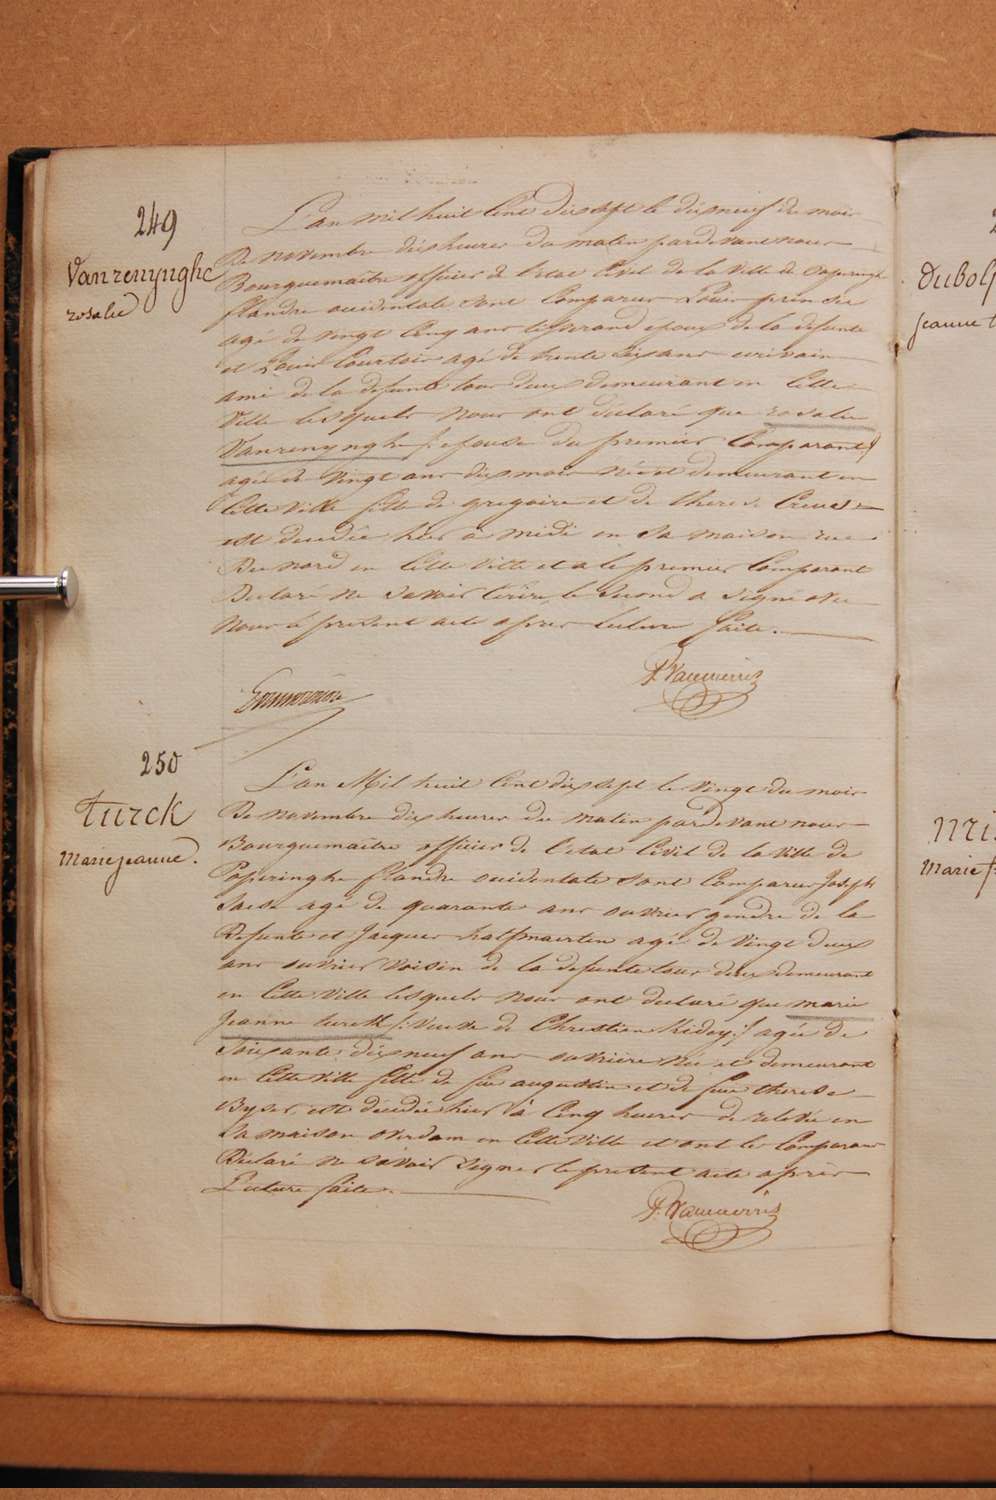 249
Vanrenynghe
rosalie
L'an mil huit Cent dix sept le dix neuf du mois
De novembre dix heures du matin pardevant nous
Bourguemaître officier de l'etat Civil de la Ville de Poperinghe
flandre occidentale sont Comparus Louis
agé de vingt Cinq ans tisserand epoux de la defunte
et Louis Courtois agé de trente six ans ecrivain
ami de la defunte tous deux demeurant en Cette
Ville lesquels Nous ont déclaré que rosalie
Vanrenynghe /: epouse du premier Comparant :/
agée de Vingt ans dix mois née et demeurant en
Cette Ville fille de gregoire et de therese
est decedée hier à midi en sa maison rue
Du nord en Cette Ville et a le premier Comparant
Declaré ne savoir ecrire le second a signé avec
Nous le present acte apres lecture faite.
250
Turck
Marie jeanne.
L'an Mil huit Cent dix sept le vingt du mois
De novembre dix heures du matin pardevant nous
Bourguemaître officier de l'etat Civil de la Ville de
Poperinghe flandre occidentale sont Comparus Joseph
agé de quarante ans ouvrier gendre de la
Defunte et Jacques halfmaerten agé de vingt deux
ans ouvrier voisin de la defunte tous deux demeurant
en Cette Ville lesquels nous ont declaré que marie
Jeanne turck /: Veuve de Christian Kédey :/ agée de
Soixante dix neuf ans ouvrière née et demeurant
en Cette Ville fille de feu augustin et de feue therese
Byser est décédée hier à Cinq heures de relevée en
Sa maison overdam en Cette Ville et ont les Comparans
Declaré ne savoir signer le present acte après
Lecture faite.
Dubois
jeanne
Marie